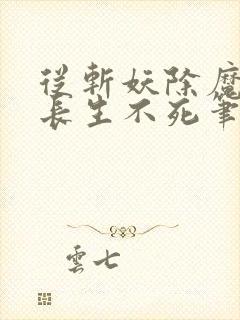 從斬妖除魔
長生不死筆
雲七